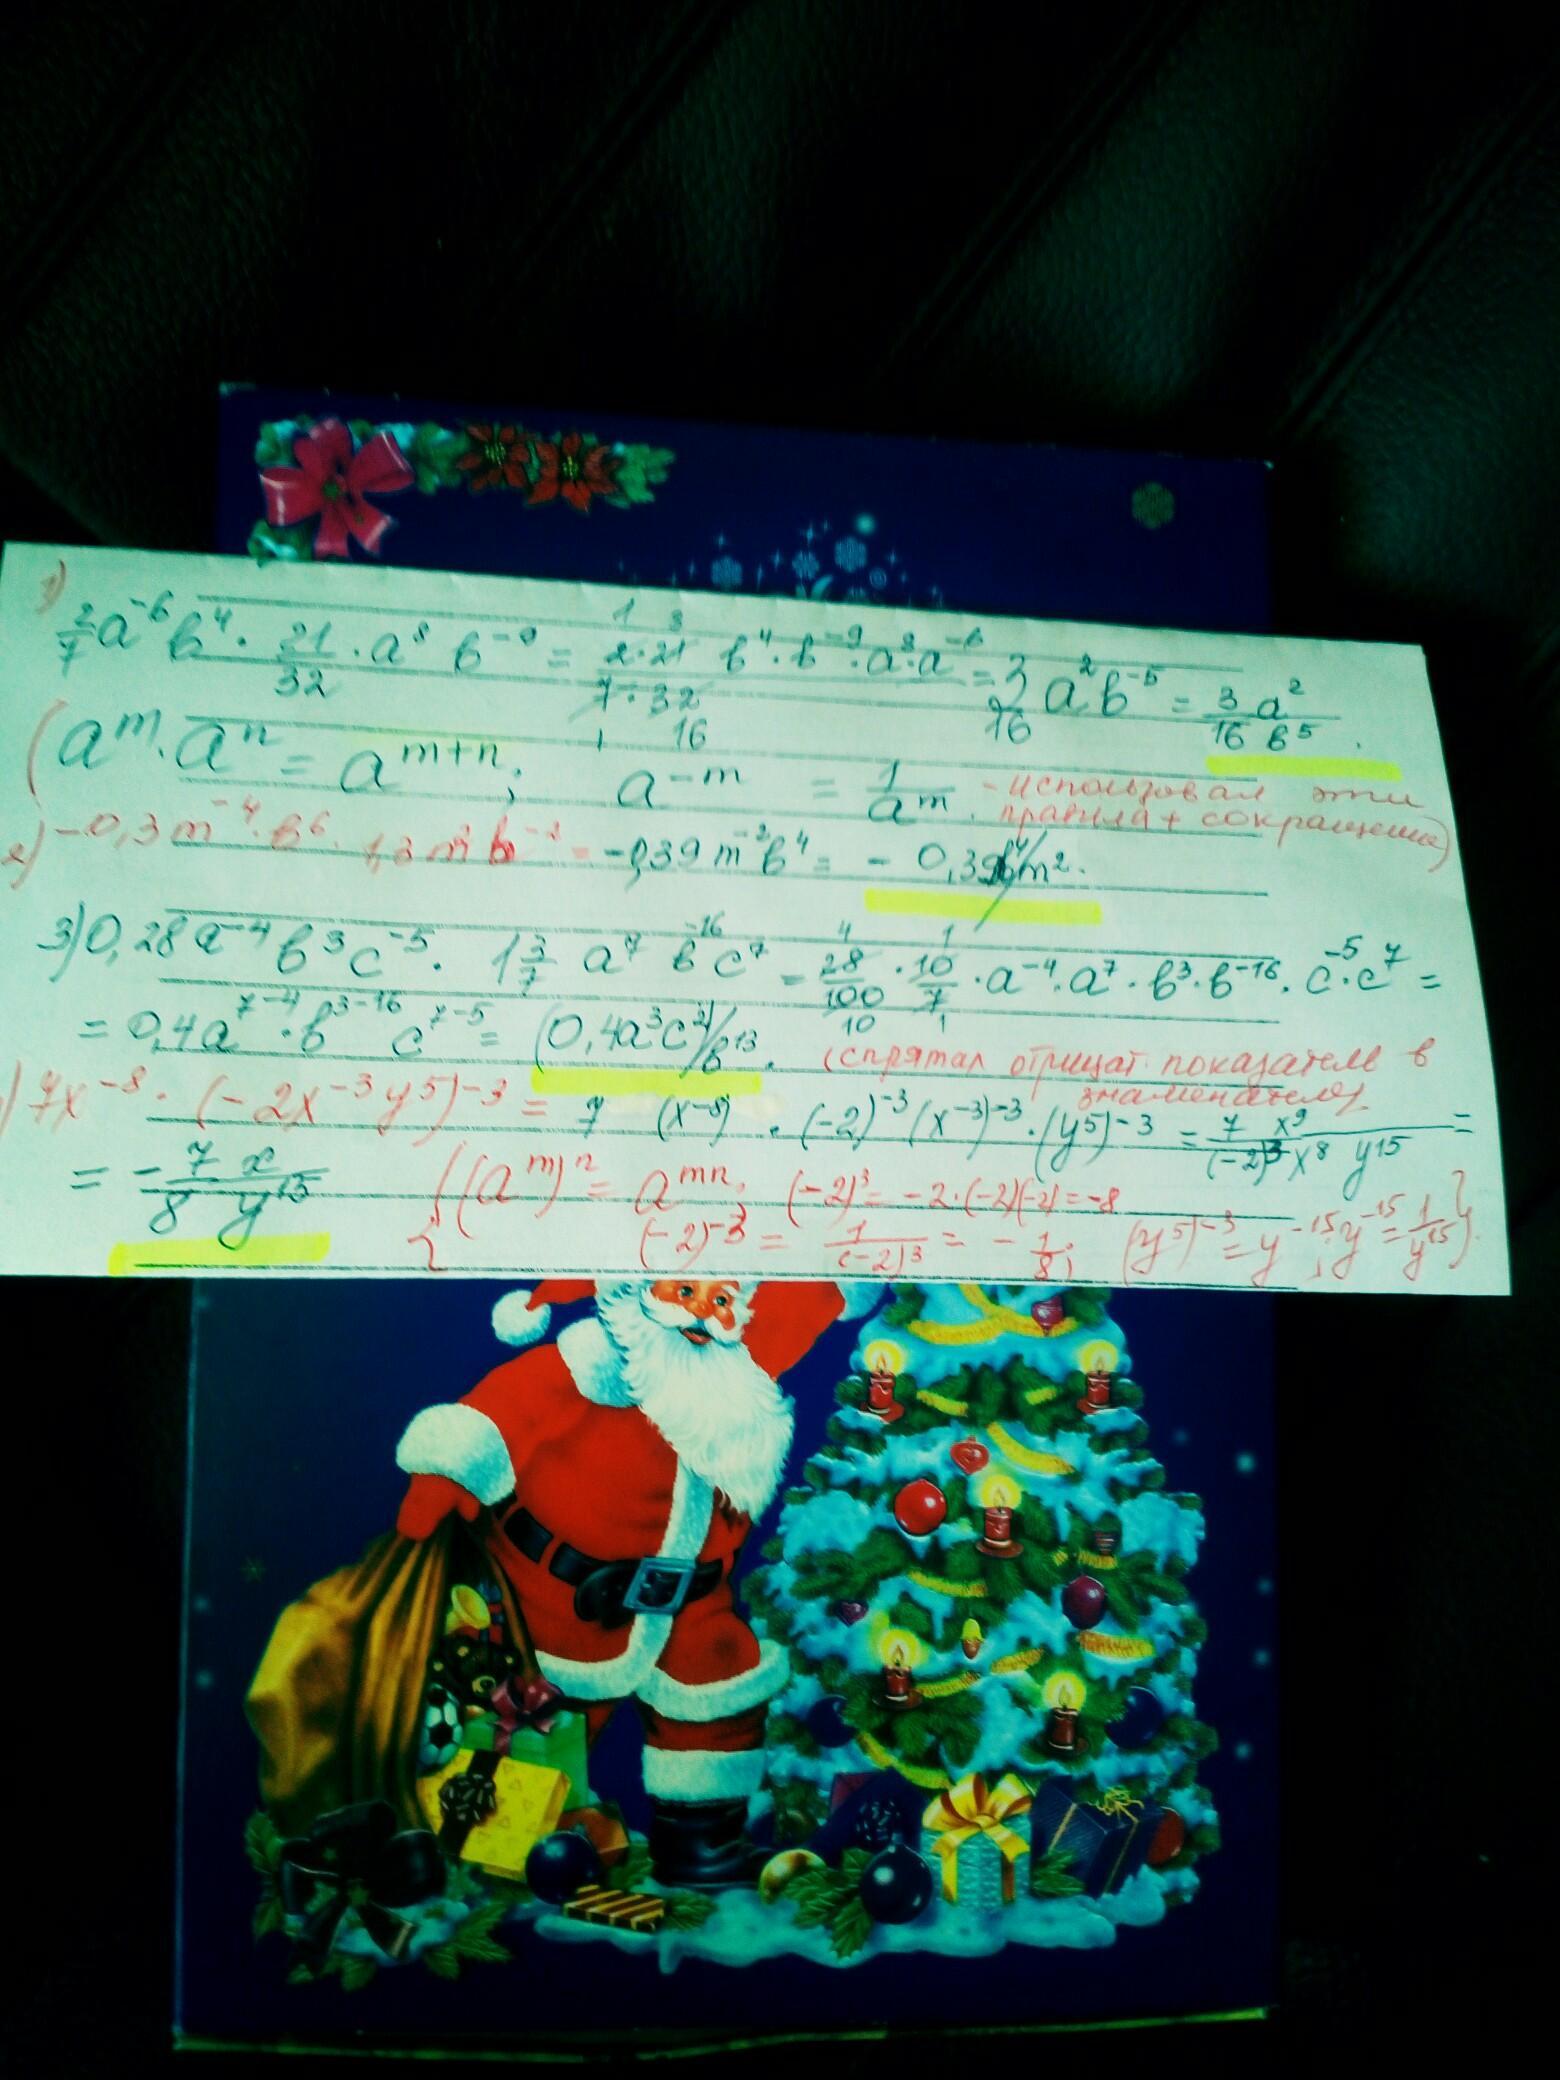 1) 2/7 a⁻⁶ b⁴ · 21/32 · a⁸ b⁻⁹ = 2·21/7·32 b⁴·b⁻⁹·a⁸·a⁻⁶ = 3/16 a² b⁻⁵ = 3/16 a²/b⁵.
(aᵐ·aⁿ = aᵐ⁺ⁿ; a⁻ᵐ = 1/aᵐ. - использовал эти
правила + сокращение)
2) -0,3m⁻⁴·b⁶· 1,3m²b⁻² = -0,39m⁻²b⁴ = -0,39b⁴/m².
3) 0,28a⁻⁴b³c⁻⁵· 1 3/7 a⁷ b⁻¹⁶ c⁷ = 28/100 · 10/7 · a⁻⁴·a⁷·b³·b⁻¹⁶·c⁻⁵·c⁷ =
= 0,4a⁷⁻⁴·b³⁻¹⁶ c⁷⁻⁵ = (0,4a³c²)/b¹³. (спрятал отрицат. показатель в
знаменатель)
7x⁻⁸ · (-2x⁻³y⁵)⁻³ = 7 (x⁻⁸) · (-2)⁻³(x⁻³)⁻³·(y⁵)⁻³ = 7 x⁹/(-2)³x⁸ y¹⁵ =
= -7x/8y¹⁵ ((aᵐ)ⁿ = aᵐⁿ; (-2)³ = -2·(-2)(-2) = -8
(-2)⁻³ = 1/(-2)³ = -1/8; (y⁵)⁻³ = y⁻¹⁵; y⁻¹⁵ = 1/y¹⁵).